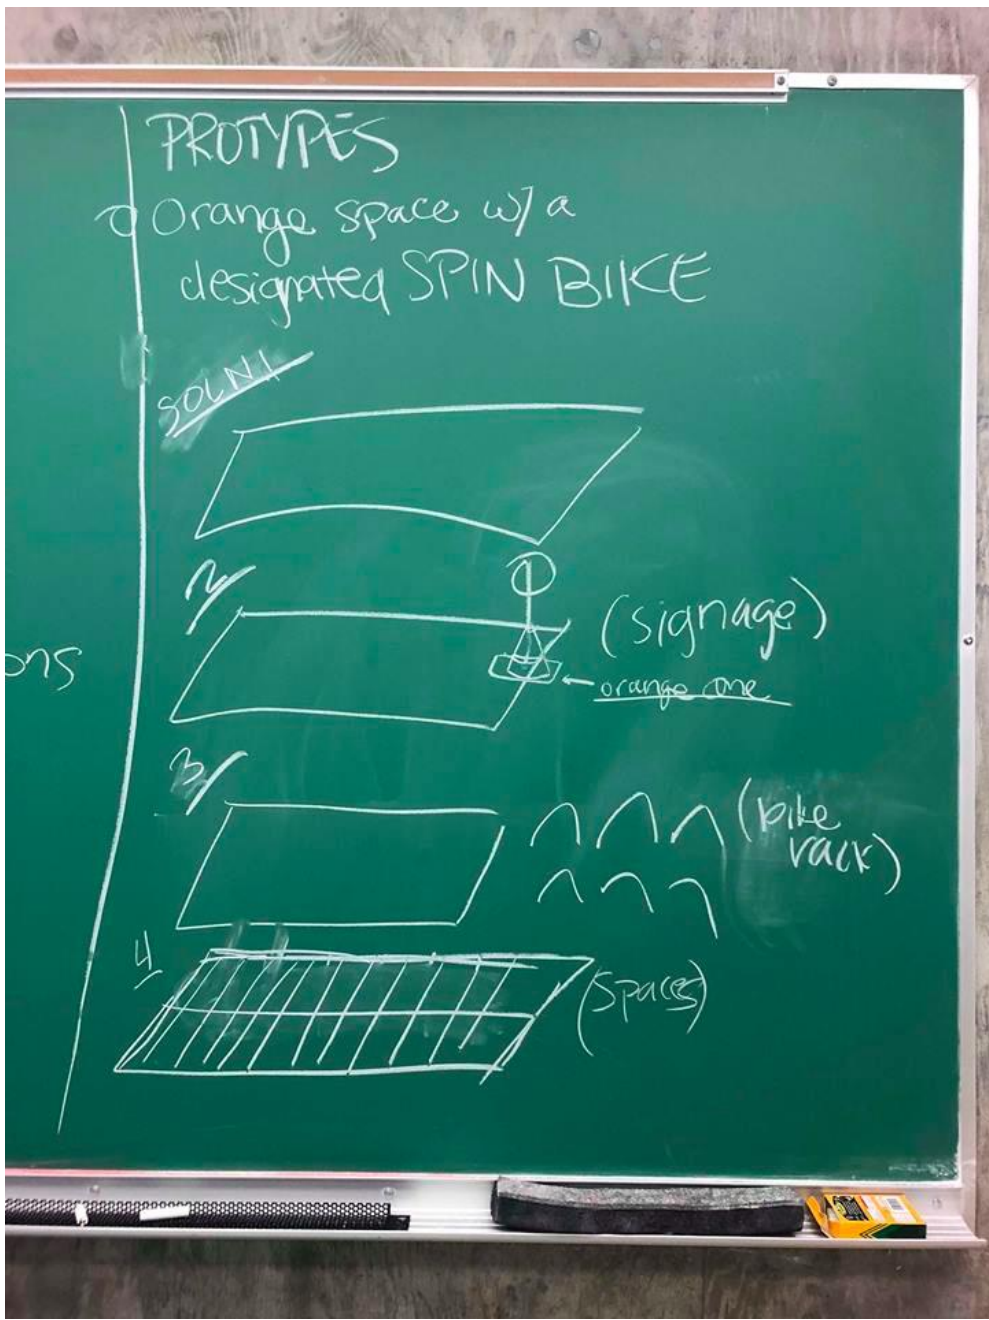 PROTYPES
Orange space w/ a
designated SPIN BIKE
SOLN 1
2/
(signage)
ons
orange cone
3/
(bike
rack)
4
(Spaces)